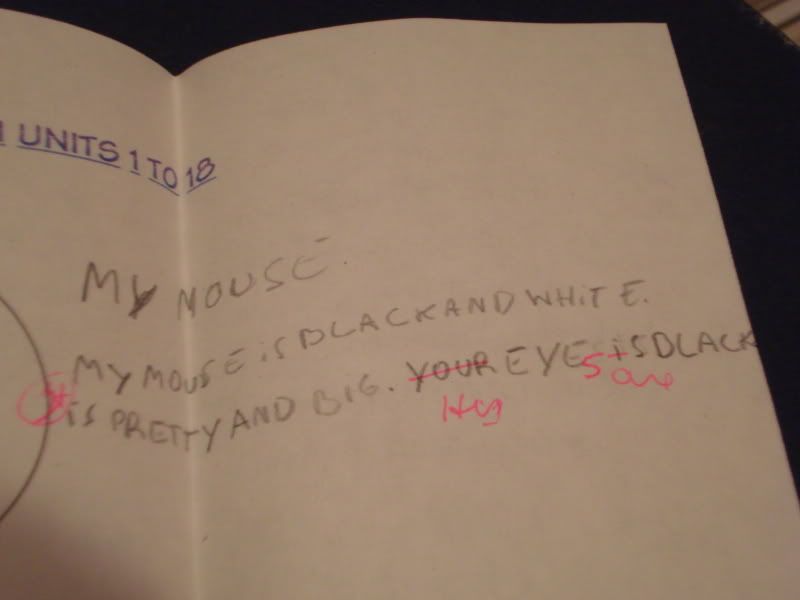 UNITS 1 TO 18
MY MOUSE.
MY MOUSE iS BLACK AND WHiTE.
iS PRETTY AND BIG. YOUR EYE S iS BLACK
are